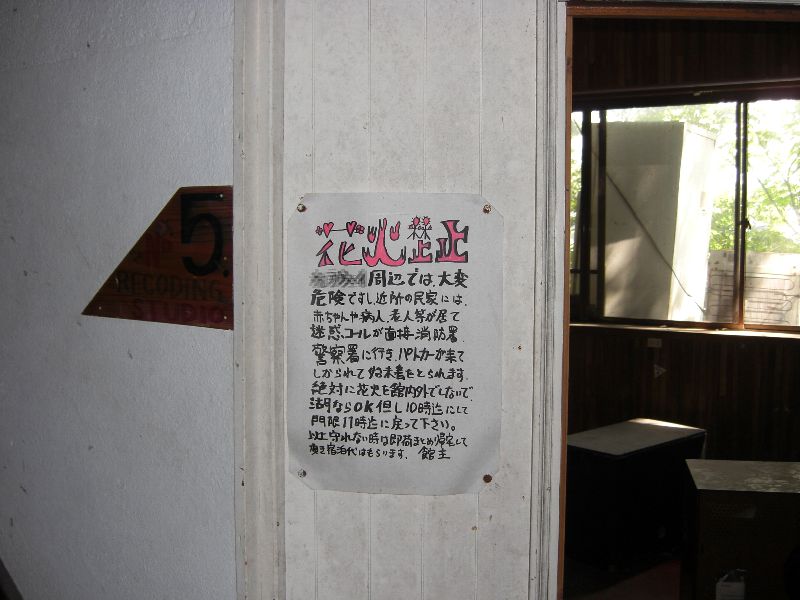 5.
RECODING
STUDIO
花火禁止
周辺では、大変
危険ですし、近所の民家には、
赤ちゃんや病人、老人等が居て
迷惑コールが直接消防署、
警察署に行き、パトカーが来て
しかられて始末書をとられます。
絶対に花火を館内外でしないで、
湖ならOK但し10時迄にして
門限11時迄に戻って下さい。
以上守れない時は即荷まとめ帰宅して
頂き宿泊代はもらいます。館主